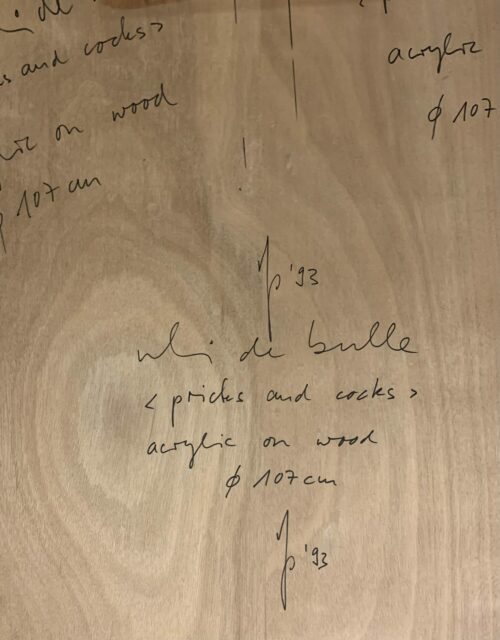 de
and cocks >
on wood
ϕ 107 cm
acrylic
ϕ 107
'93
de
< pricks and cocks >
acrylic on wood
ϕ 107 cm
'93